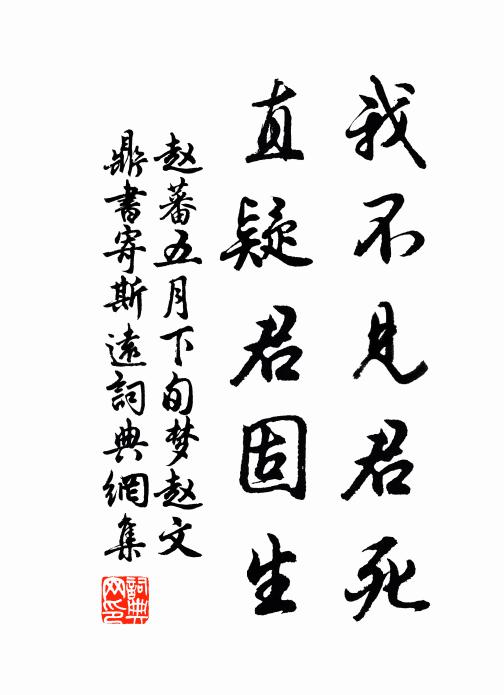 我不见君死
直疑君固生
赵蕃五月下旬梦赵文
鼎书寄斯远詞典網集
詞典网印